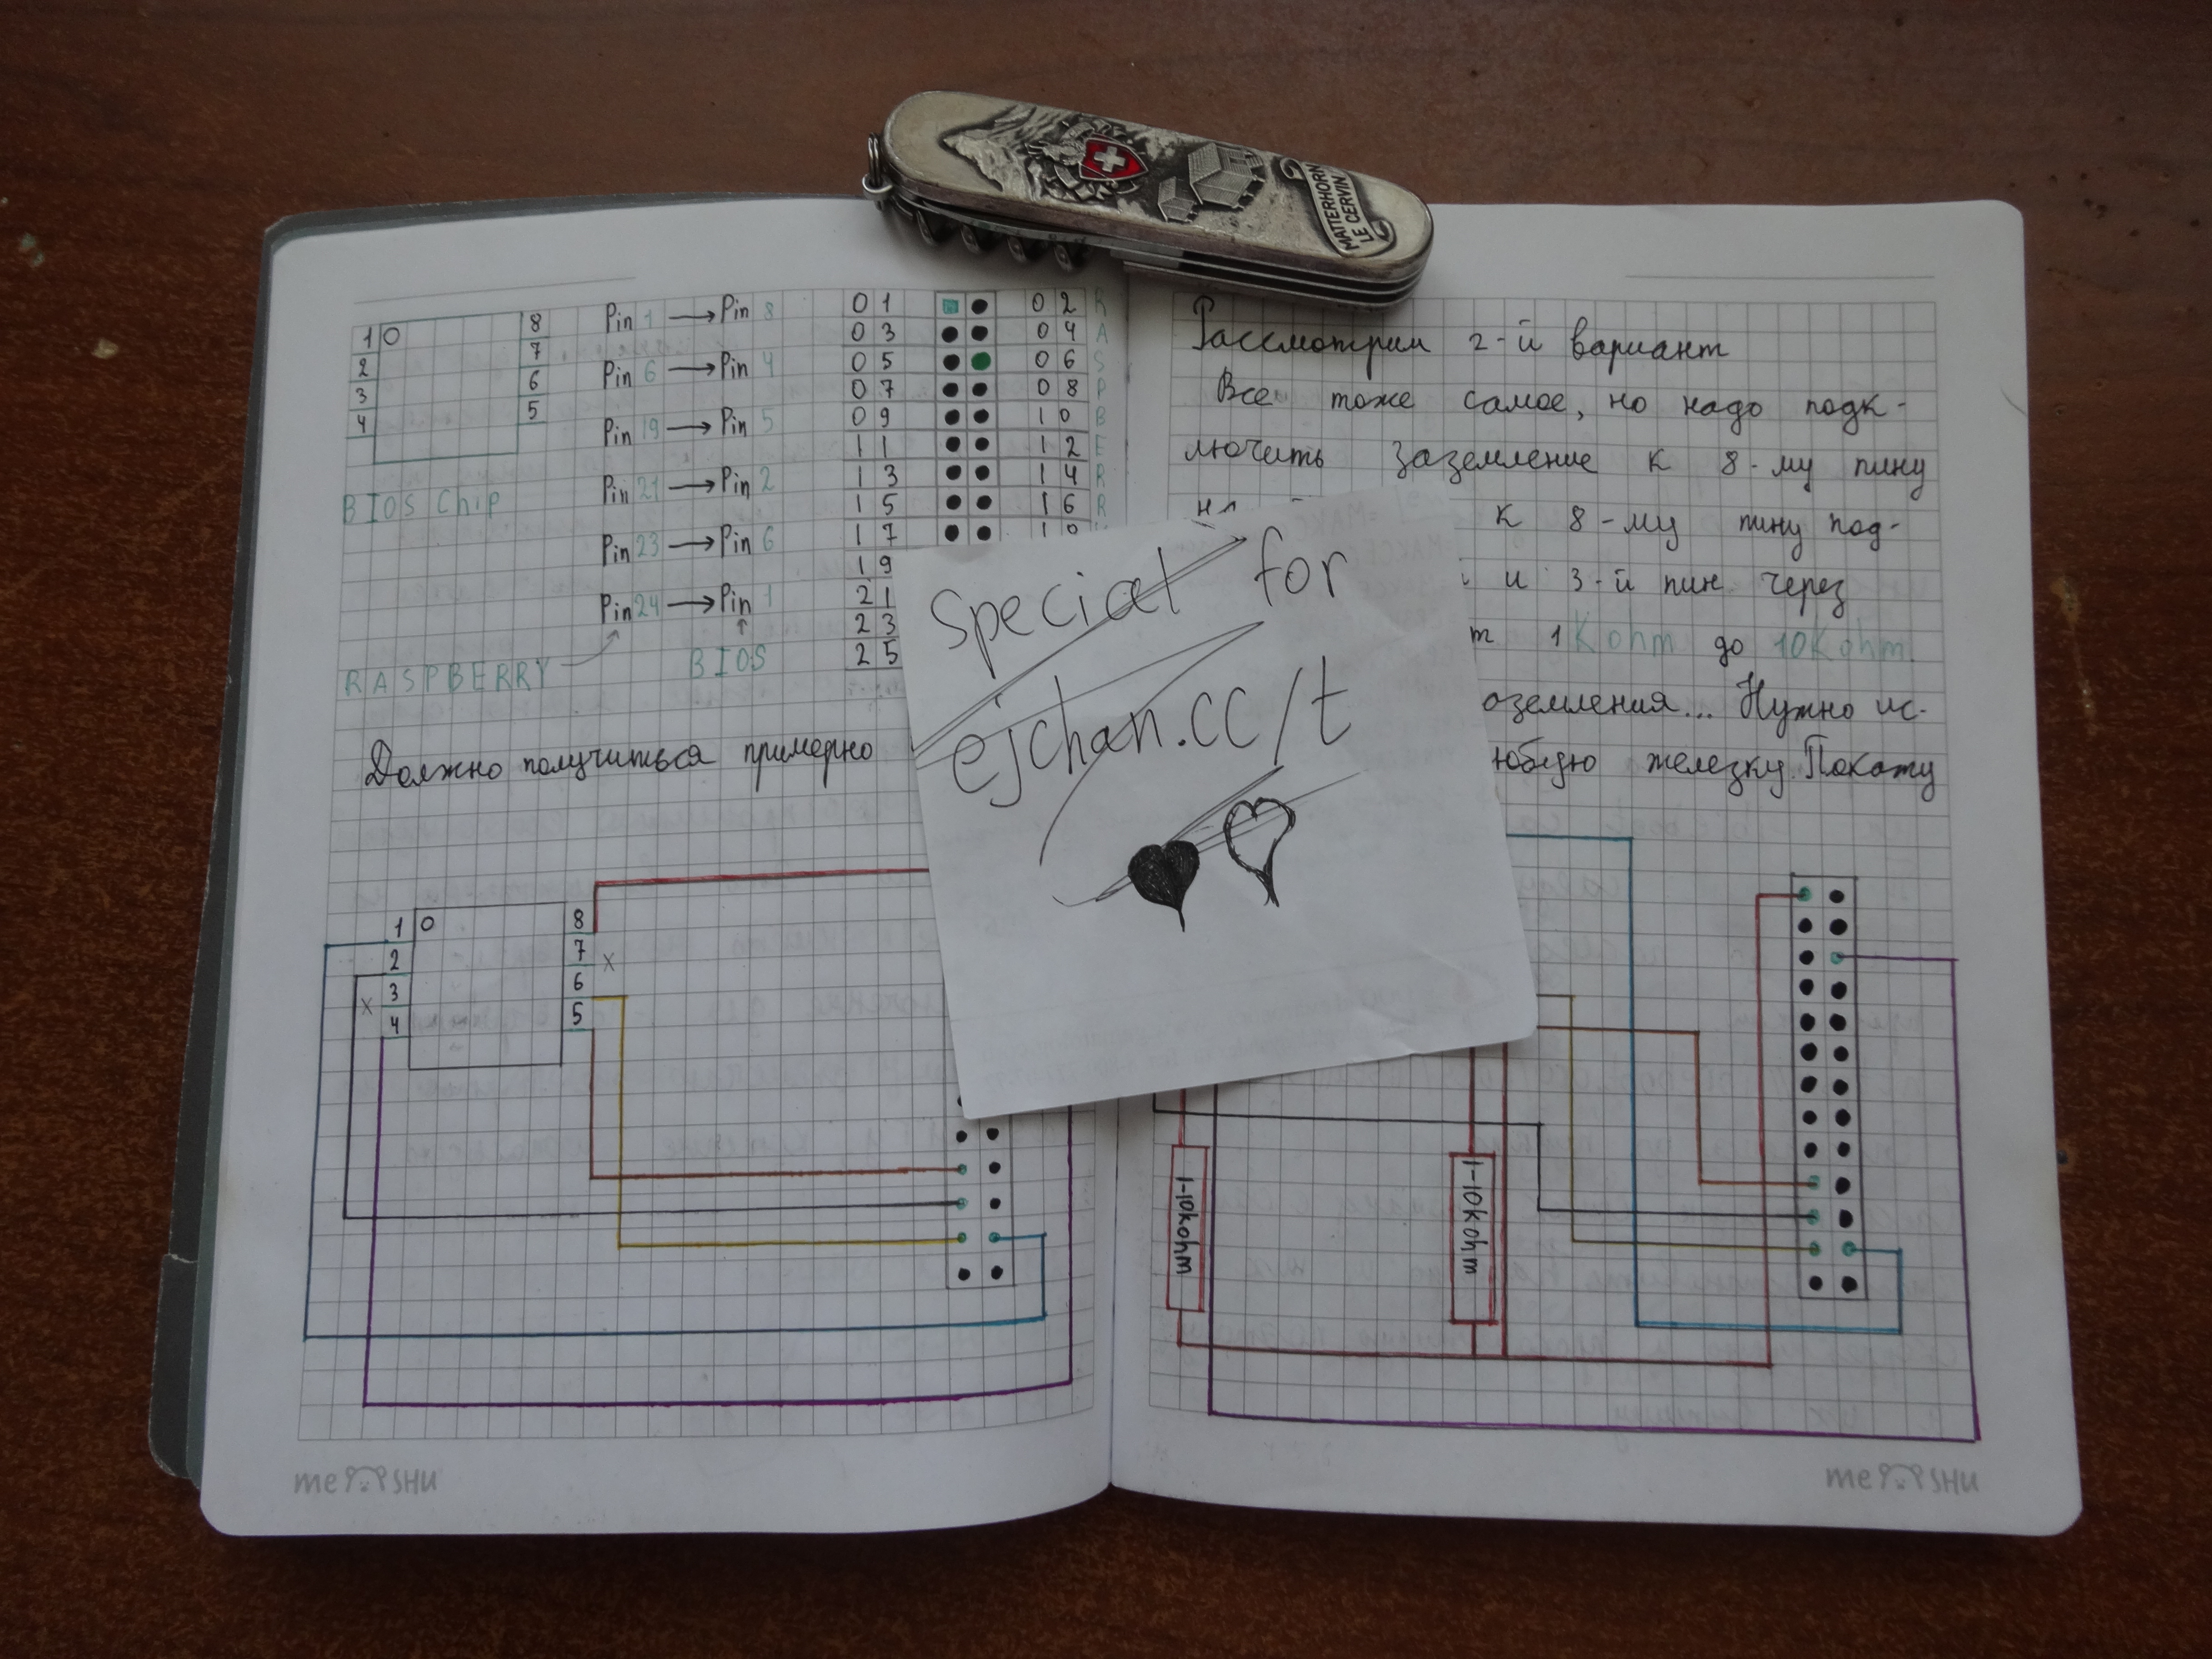 MATTERHORN
LE CERVIN
1 8
2 7
3 6
4 5
BIOS Chip
Pin 1 → Pin 8
Pin 6 → Pin 4
Pin 19 → Pin 5
Pin 21 → Pin 2
Pin 23 → Pin 6
Pin 24 → Pin 1
RASPBERRY
BIOS
01 02 R
03 04 A
05 06 S
07 08 P
09 10 B
11 12 E
13 14 R
15 16 R
17
19
21
23
25
Должно получиться примерно
1 8
2 7 x
x 3 6
4 5
Рассмотрим 2-й вариант
Все тоже самое, но надо подк-
лючить заземление к 8-му пину
к 8-му пину под-
и 3-й пин через
1Kohm до 10Kohm.
оземления... Нужно ис-
железку. Покажу
1-10kohm
1-10kohm
Special for
ejchan.cc/t
me SHU
me SHU